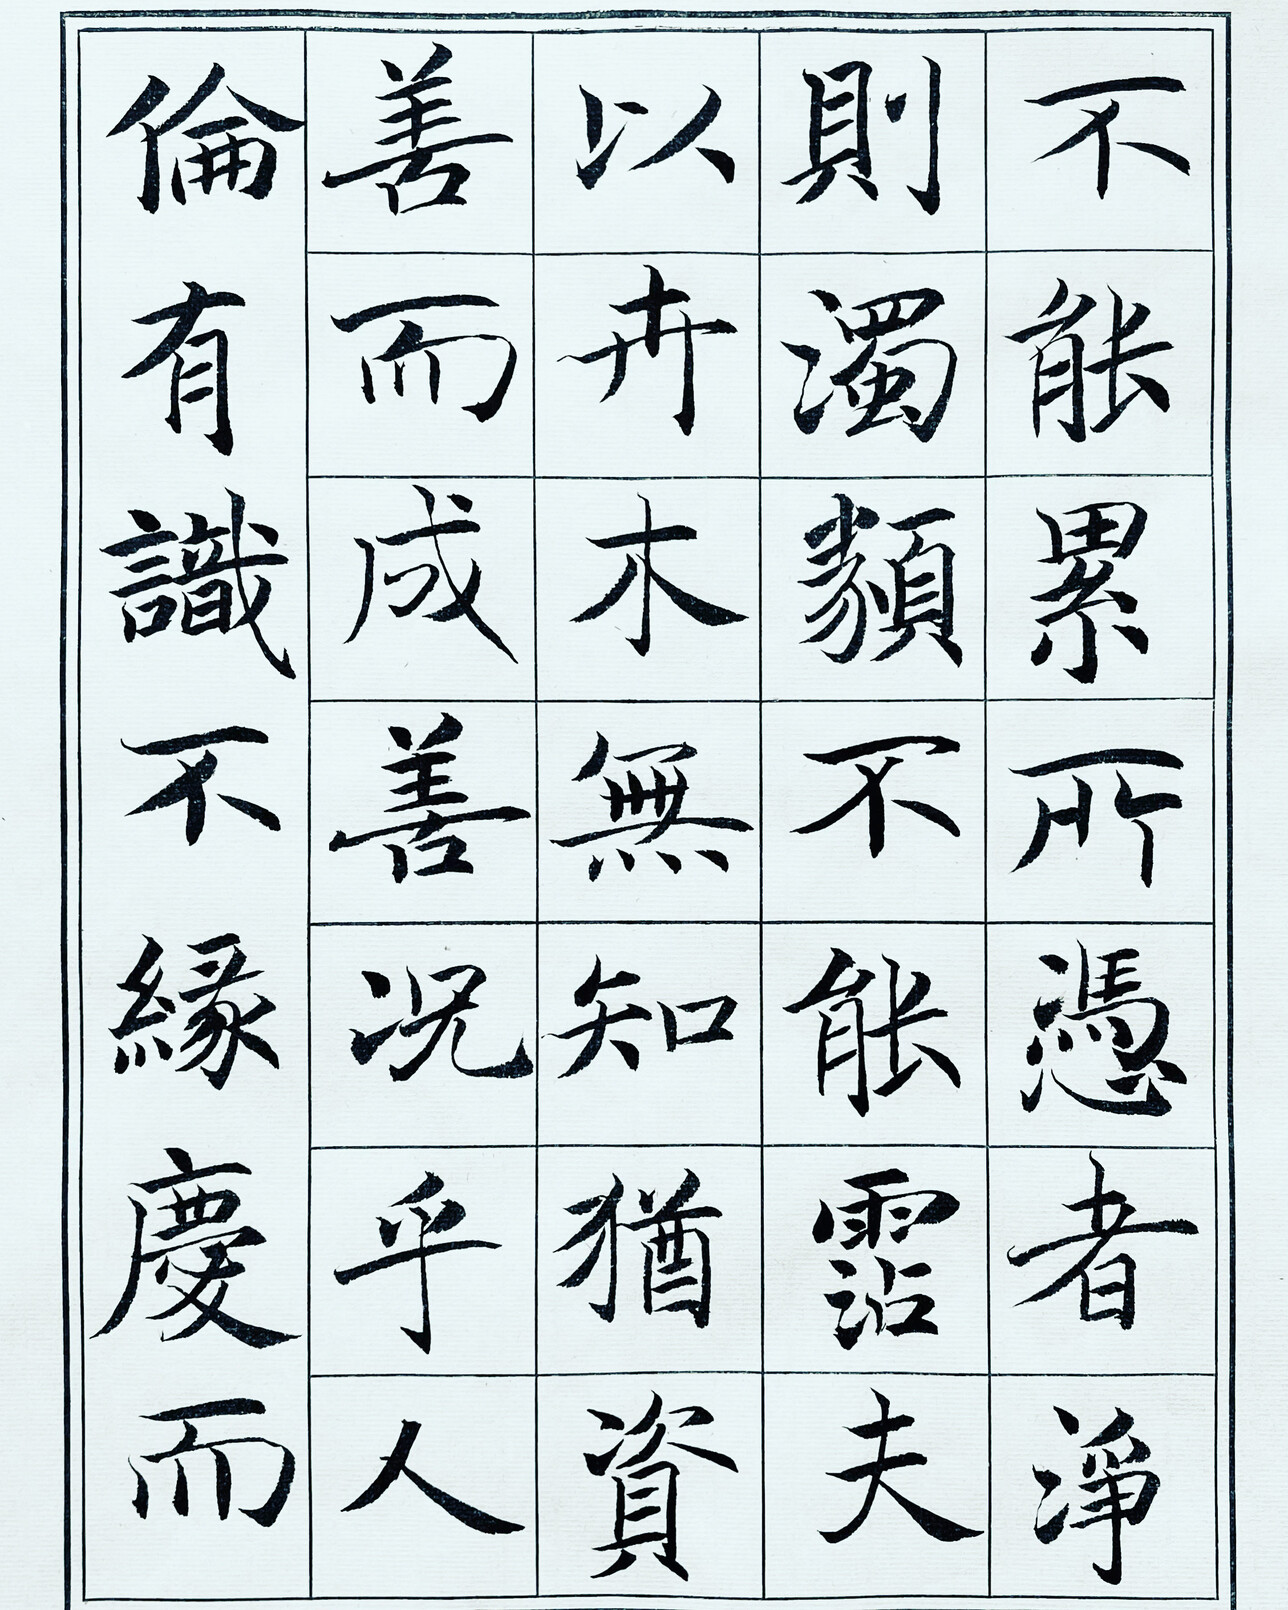 不能累所憑者淨
則濁類不能霑夫
以卉木無知猶資
善而成善況乎人
倫有識不緣慶而